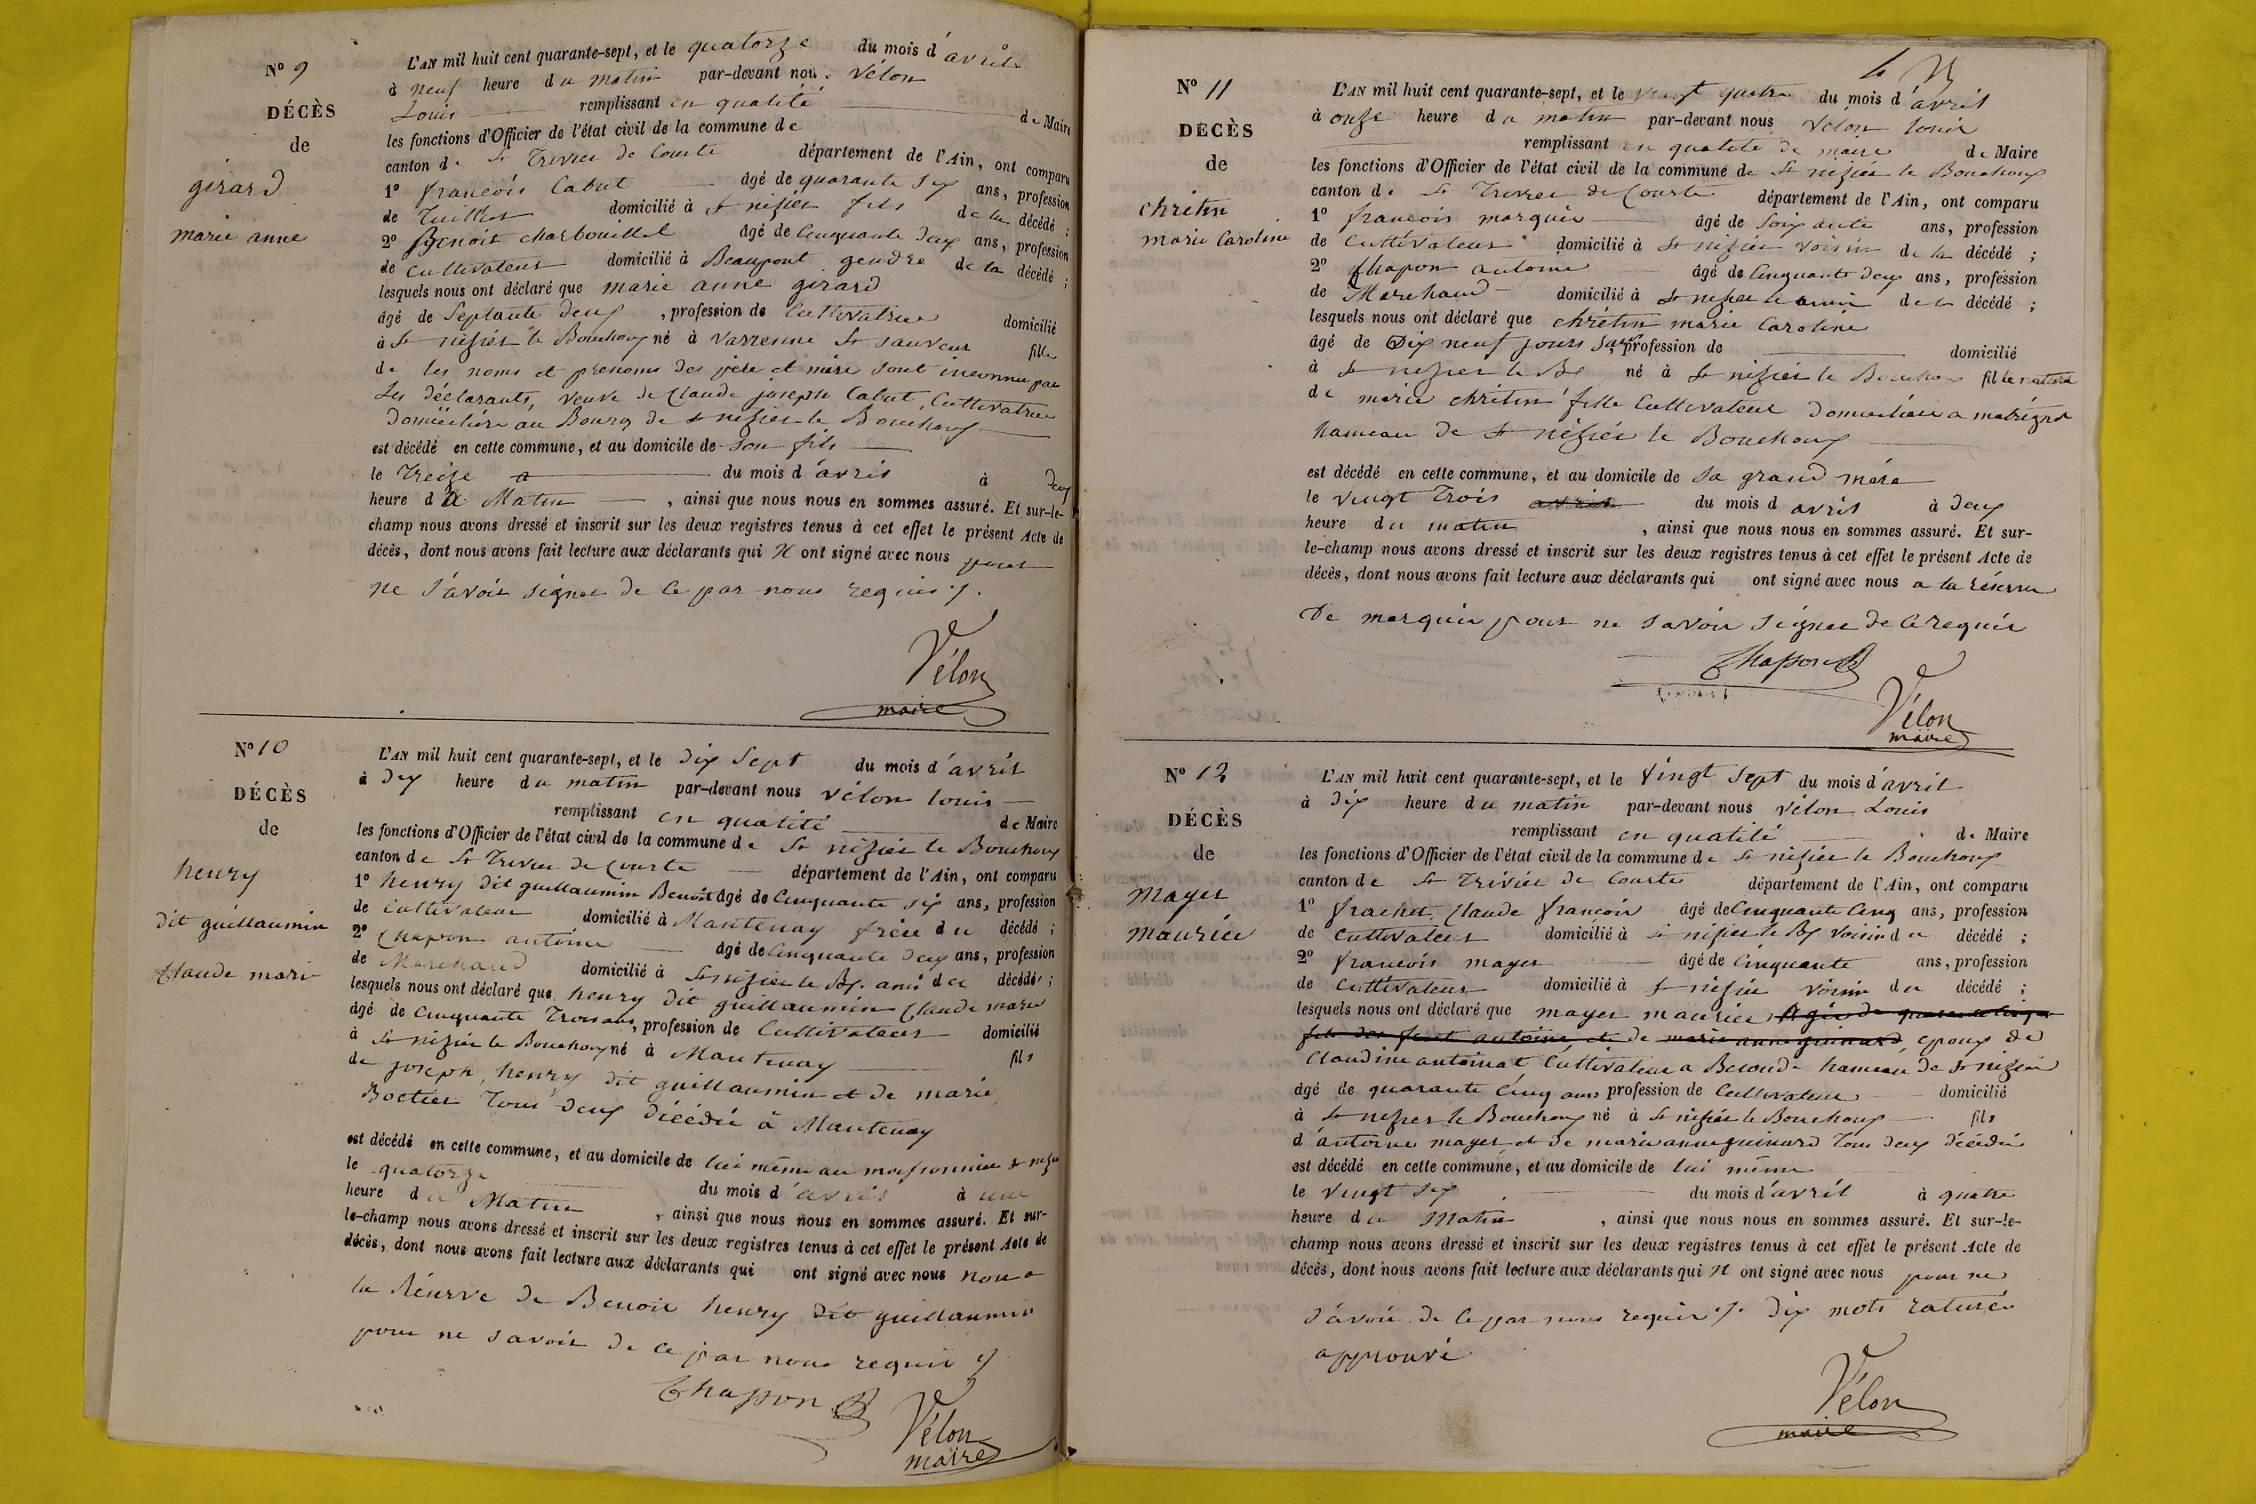 N° 9
DÉCÈS
de
girard
marie anne
L'AN mil huit cent quarante-sept, et le quatorze du mois d'avril
à neuf heure du matin par-devant nous Vélon
Louis remplissant en qualité de Maire
les fonctions d'Officier de l'état civil de la commune de
canton de St Trivier de Courte département de l'Ain, ont comparu
1° francois Cabut âgé de quarante Six ans, profession
de domicilié à St nizier fils de la décédé ;
2° Benoit charbouillet âgé de Cinquante deux ans, profession
de Cultivateur domicilié à Beaupont gendre de la décédé ;
lesquels nous ont déclaré que marie anne girard
âgé de Septante deux , profession de Cultivatrice domicilié
à St nizier le Bouchoux né à Varrenne St Sauveur fille
de les noms et prenoms des père et mère sont inconnu par
Les déclarants, veuve de Claude joseph Cabut, Cultivatrice
Domicilière au Bourg de St nizier le Bouchoux
est décédé en cette commune, et au domicile de son fils
le treize du mois d'avril à deux
heure du Matin , ainsi que nous nous en sommes assuré. Et sur-le-
champ nous avons dressé et inscrit sur les deux registres tenus à cet effet le présent Acte de
décès, dont nous avons fait lecture aux déclarants qui N ont signé avec nous pour
ne savoir signer de ce par nous requis %.
Vélon
maire
N° 10
DÉCÈS
de
henry
dit guillaumin
Claude marie
L'AN mil huit cent quarante-sept, et le dix Sept du mois d'avril
à dix heure du matin par-devant nous Vélon Louis
remplissant en qualité de Maire
les fonctions d'Officier de l'état civil de la commune de St nizier le Bouchoux
canton de St Trivier de Courte département de l'Ain, ont comparu
1° henry dit guillaumin Benoit âgé de Cinquante Six ans, profession
de Cultivateur domicilié à Mantenay frère du décédé ;
2° Chapon antoine âgé de Cinquante deux ans, profession
de Marchand domicilié à St nizier le Bx. ami du décédé ;
lesquels nous ont déclaré que henry dit guillaumin Claude marie
âgé de Cinquante Trois ans, profession de Cultivateur domicilié
à St nizier le Bouchoux né à Mantenay fils
de joseph, henry dit guillaumin et de marie
Tous deux décédé à Mantenay
est décédé en cette commune, et au domicile de lui même au St nizier
le quatorze du mois d'avril à une
heure du Matin , ainsi que nous nous en sommes assuré. Et sur-
le-champ nous avons dressé et inscrit sur les deux registres tenus à cet effet le présent Acte de
décès, dont nous avons fait lecture aux déclarants qui ont signé avec nous non a
la Réserve de Benoit henry dit guillaumin
pour ne savoir de ce par nous requis %
Chappon
Vélon
maire
N° 11
DÉCÈS
de
chrétin
marie Caroline
L'AN mil huit cent quarante-sept, et le vingt quatre du mois d'avril
à onze heure du matin par-devant nous Vélon Louis
remplissant en qualité de maire de Maire
les fonctions d'Officier de l'état civil de la commune de St nizier le Bouchoux
canton de St Trivier de Courte département de l'Ain, ont comparu
1° francois marquis âgé de Soixante ans, profession
de Cultivateur domicilié à St nizier voisin de la décédé ;
2° Chapon antoine âgé de Cinquante deux ans, profession
de Marchand domicilié à St nizier de la décédé ;
lesquels nous ont déclaré que chrétin marie Caroline
âgé de Dix neuf jours Sans, profession de domicilié
à St nizier le Bx né à St nizier le Bouchoux fille naturel
de marie chrétin fille Cultivateur Domicilière a
hameau de St nizier le Bouchoux
est décédé en cette commune, et au domicile de Sa grand mère
le vingt Trois avril du mois d avril à deux
heure du matin , ainsi que nous nous en sommes assuré. Et sur-
le-champ nous avons dressé et inscrit sur les deux registres tenus à cet effet le présent Acte de
décès, dont nous avons fait lecture aux déclarants qui ont signé avec nous a la réserve
De marquis pour ne savoir signer de ce requis
Chappon
Vélon
maire
N° 12
DÉCÈS
de
mayer
maurice
L'AN mil huit cent quarante-sept, et le Vingt Sept du mois d'avril
à dix heure du matin par-devant nous Vélon Louis
remplissant en qualité de Maire
les fonctions d'Officier de l'état civil de la commune de St nizier le Bouchoux
canton de St Trivier de Courte département de l'Ain, ont comparu
1° frachet Claude francois âgé de Cinquante Cinq ans, profession
de Cultivateur domicilié à St nizier le Bx voisin du décédé ;
2° francois mayer âgé de Cinquante ans, profession
de Cultivateur domicilié à St nizier voisin du décédé ;
lesquels nous ont déclaré que mayer maurice agé de quarante Cinq
antoine et de marie anne guinard epoux de
Claudine antoinat Cultivateur a hameau de St nizier
âgé de quarante Cinq ans profession de Cultivateur domicilié
à St nizier le Bouchoux né à St nizier le Bouchoux fils
d'antoine mayer et de marie anne guinard Tous deux décédé
est décédé en cette commune, et au domicile de lui même
le vingt Six du mois d'avril à quatre
heure du Matin , ainsi que nous nous en sommes assuré. Et sur-le-
champ nous avons dressé et inscrit sur les deux registres tenus à cet effet le présent Acte de
décès, dont nous avons fait lecture aux déclarants qui N ont signé avec nous pour ne
savoir de ce par nous requis %. dix mots raturé
approuvé
Vélon
maire